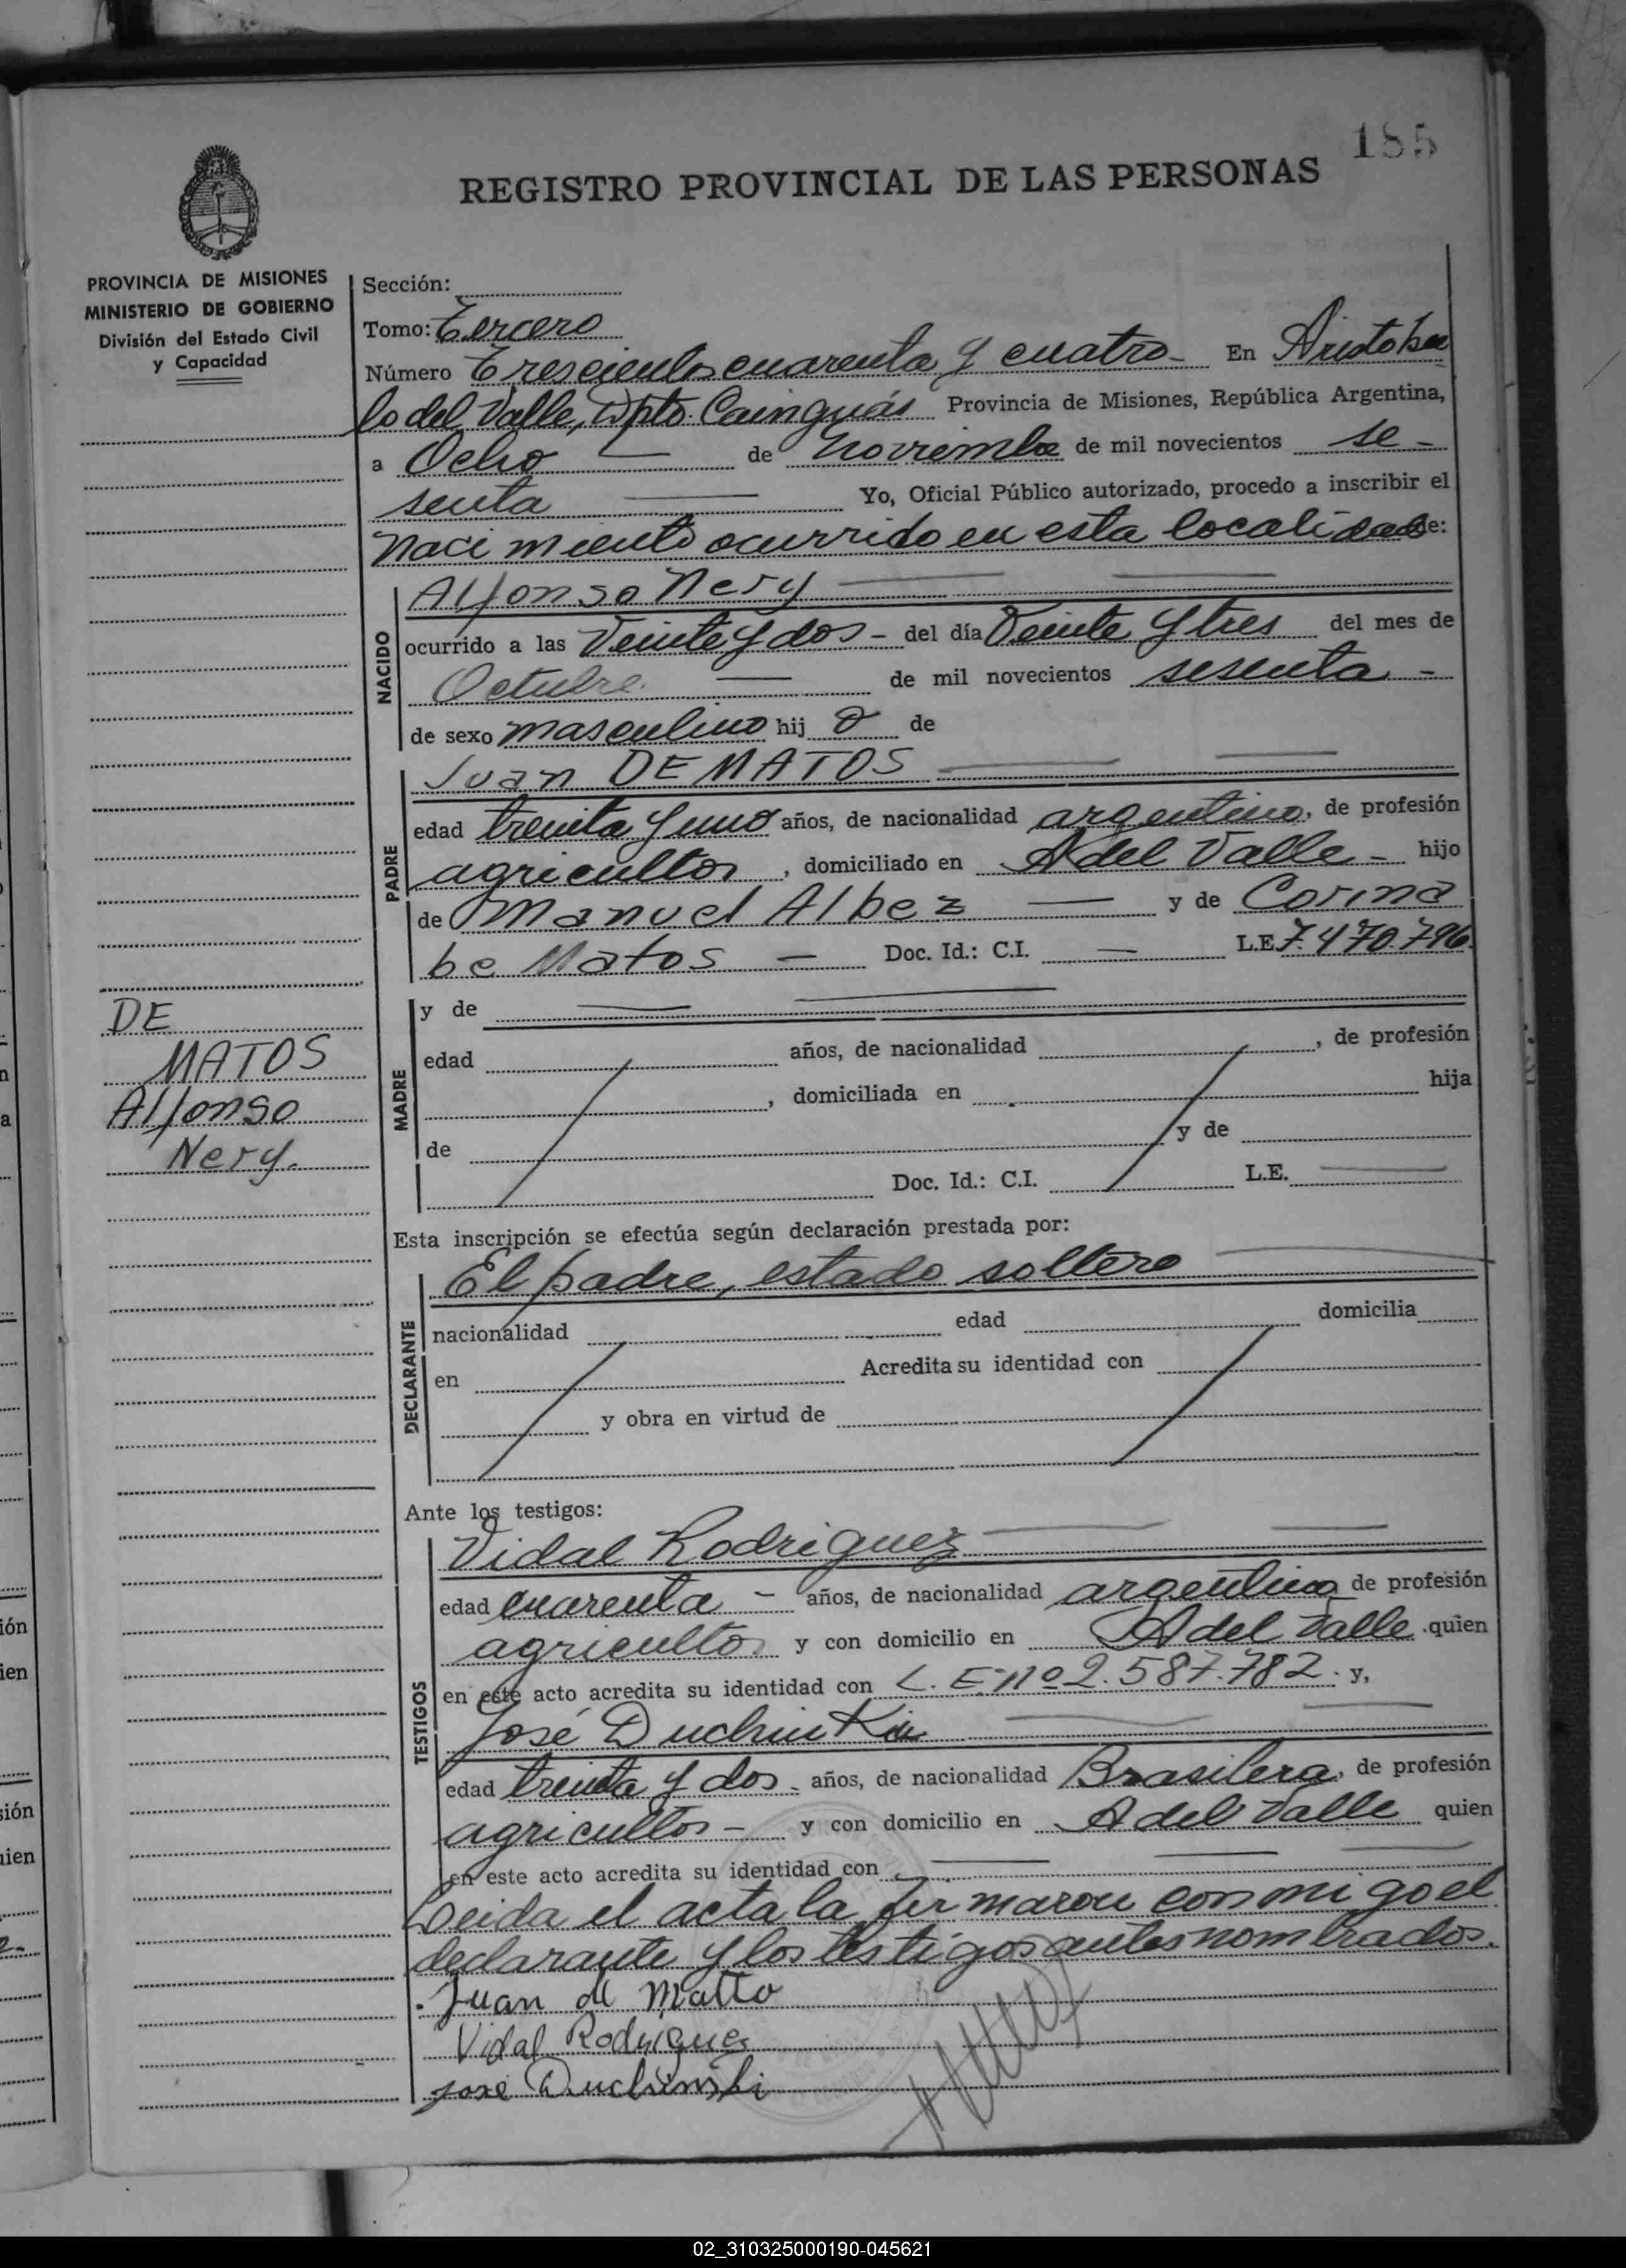 185
REGISTRO PROVINCIAL DE LAS PERSONAS
PROVINCIA DE MISIONES
MINISTERIO DE GOBIERNO
División del Estado Civil
y Capacidad
DE
MATOS
Alfonso
Nery.
Sección:
Tomo: Tercero
Número Trescientos cuarenta y cuatro - En Aristobu
lo del Valle, Dpto. Cainguás Provincia de Misiones, República Argentina,
a Ocho — de noviembre de mil novecientos se-
senta — Yo, Oficial Público autorizado, procedo a inscribir el
nacimiento ocurrido en esta localidad de:
NACIDO
Alfonso Nery
ocurrido a las Veinte y dos - del día Veinte y tres del mes de
Octubre — de mil novecientos sesenta -
de sexo masculino hij o de
PADRE
Juan DE MATOS
edad treinta y uno años, de nacionalidad argentino, de profesión
agricultor, domiciliado en A del Valle - hijo
de Manuel Albez — y de Corina
be Matos — Doc. Id.: C.I. — L.E. 7.470.796.
MADRE
y de
edad años, de nacionalidad , de profesión
, domiciliada en hija
de y de
Doc. Id.: C.I. L.E.
Esta inscripción se efectúa según declaración prestada por:
DECLARANTE
El padre, estado soltero
nacionalidad edad domicilia
en Acredita su identidad con
y obra en virtud de
Ante los testigos:
TESTIGOS
Vidal Rodriguez
edad cuarenta - años, de nacionalidad argentina de profesión
agricultor y con domicilio en A del Valle quien
en este acto acredita su identidad con L. E. nº 2.587.782. y,
José
edad treinta y dos - años, de nacionalidad Brasilera, de profesión
agricultor - y con domicilio en A del Valle quien
en este acto acredita su identidad con
Leida el acta la firmaron conmigo el
declarante y los testigos antes nombrados.
Juan de Matto
Vidal Rodriguez
José Duchinski
02_310325000190-045621